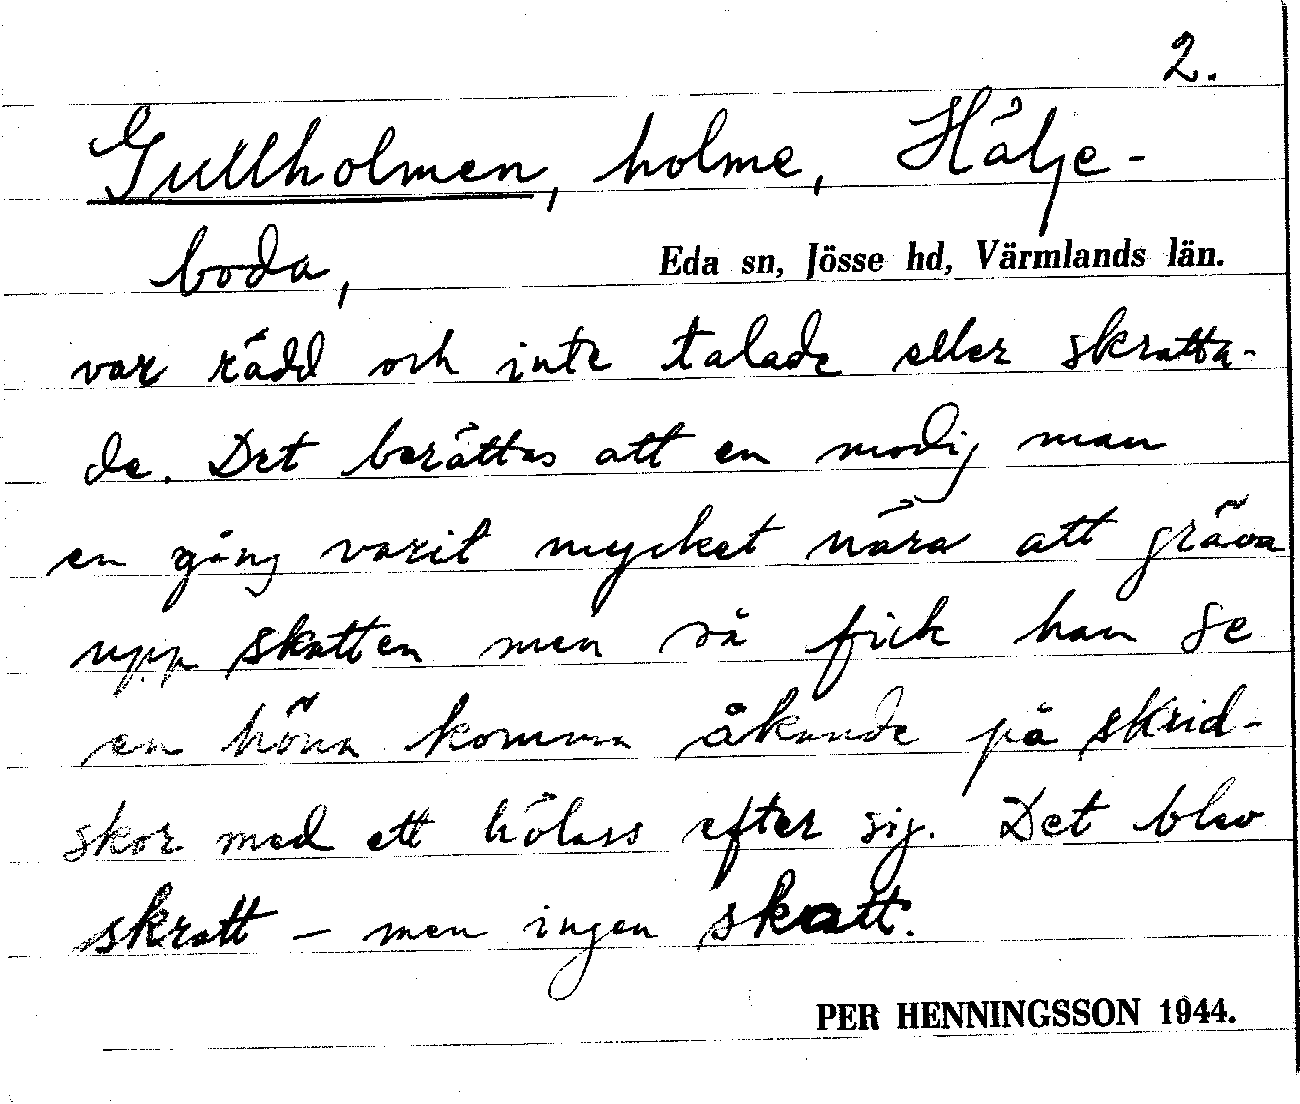 2.
Gullholmen, holme, Hälje-
boda, Eda sn, Jösse hd, Värmlands län.
var rädd och inte talade eller skratta-
de. Det berättas att en modig man
en gång varit mycket nära att gräva
upp skatten men så fick han se
en höna komma åkande på skrid-
skor med ett hölass efter sig. Det blev
skratt – men ingen skatt.
PER HENNINGSSON 1944.